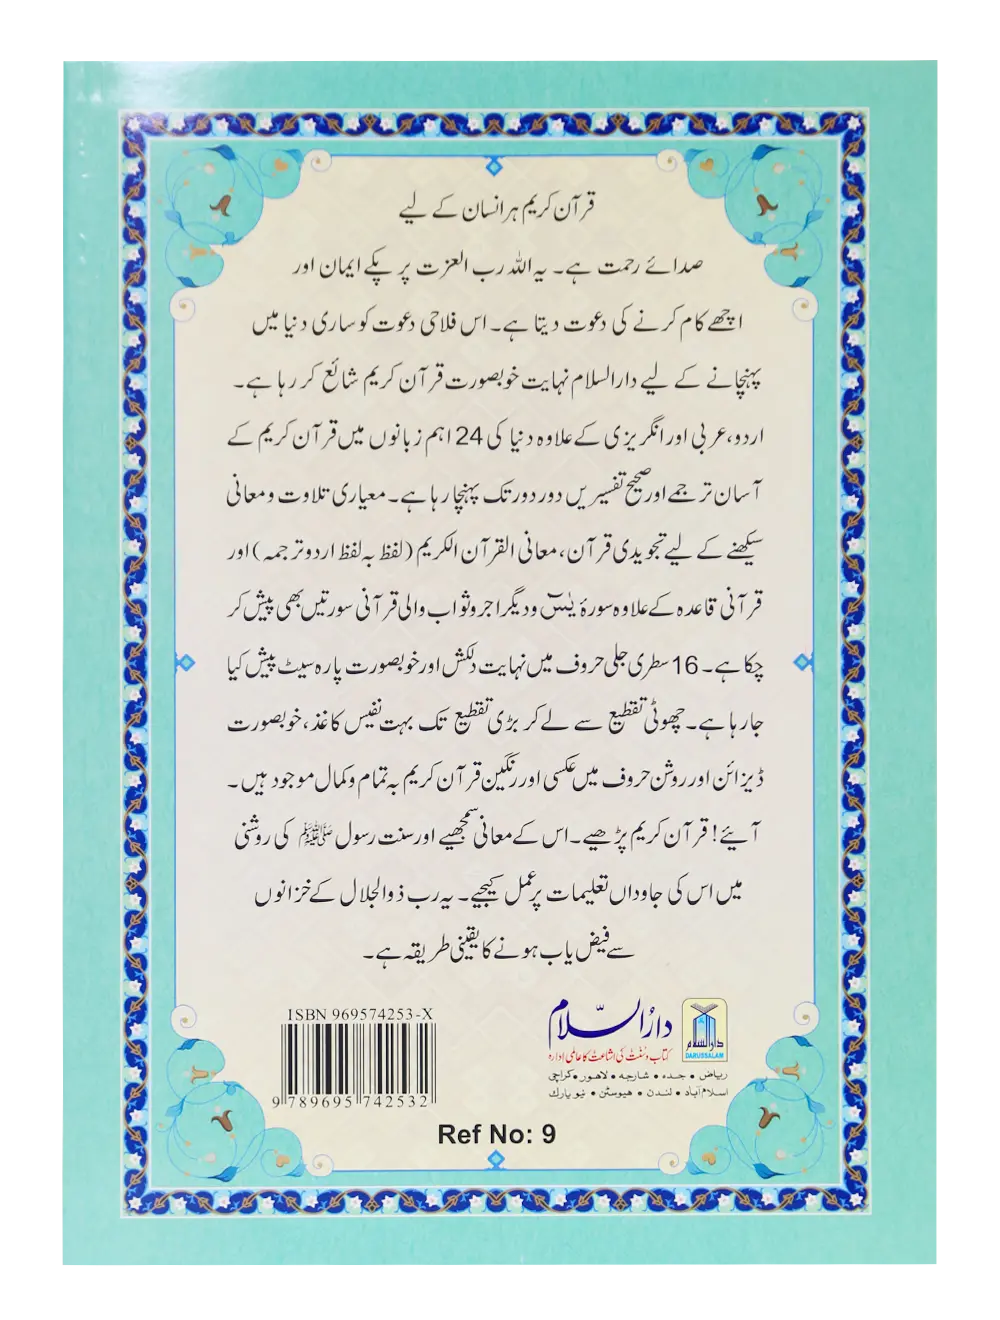 قرآن کریم ہر انسان کے لیے
صدائے رحمت ہے۔ یہ اللہ رب العزت پر پکے ایمان اور
اچھے کام کرنے کی دعوت دیتا ہے۔ اس فلاحی دعوت کو ساری دنیا میں
پہنچانے کے لیے دارالسلام نہایت خوبصورت قرآن کریم شائع کر رہا ہے۔
اردو، عربی اور انگریزی کے علاوہ دنیا کی 24 اہم زبانوں میں قرآن کریم کے
آسان ترجمے اور صحیح تفسیریں دور دور تک پہنچا رہا ہے۔ معیاری تلاوت و معانی
سیکھنے کے لیے تجویدی قرآن، معانی القرآن الکریم (لفظ بہ لفظ اردو ترجمہ) اور
قرآنی قاعدہ کے علاوہ سورۂ یٰسٓ و دیگر اجر و ثواب والی قرآنی سورتیں بھی پیش کر
چکا ہے۔ 16 سطری جلی حروف میں نہایت دلکش اور خوبصورت پارہ سیٹ پیش کیا
جا رہا ہے۔ چھوٹی تقطیع سے لے کر بڑی تقطیع تک بہت نفیس کاغذ، خوبصورت
ڈیزائن اور روشن حروف میں عکسی اور رنگین قرآن کریم بہ تمام و کمال موجود ہیں۔
آیئے! قرآن کریم پڑھیے۔ اس کے معانی سمجھیے اور سنت رسول ﷺ کی روشنی
میں اس کی جاوداں تعلیمات پر عمل کیجیے۔ یہ رب ذوالجلال کے خزانوں
سے فیض یاب ہونے کا یقینی طریقہ ہے۔
دارُالسّلام
کتاب و سنت کی اشاعت کا عالمی ادارہ
ریاض • جدہ • شارجہ • لاہور • کراچی
اسلام آباد • لندن • ہیوسٹن • نیو یارک
دارالسلام
DARUSSALAM
ISBN 969574253-X
9 789695 742532
Ref No: 9